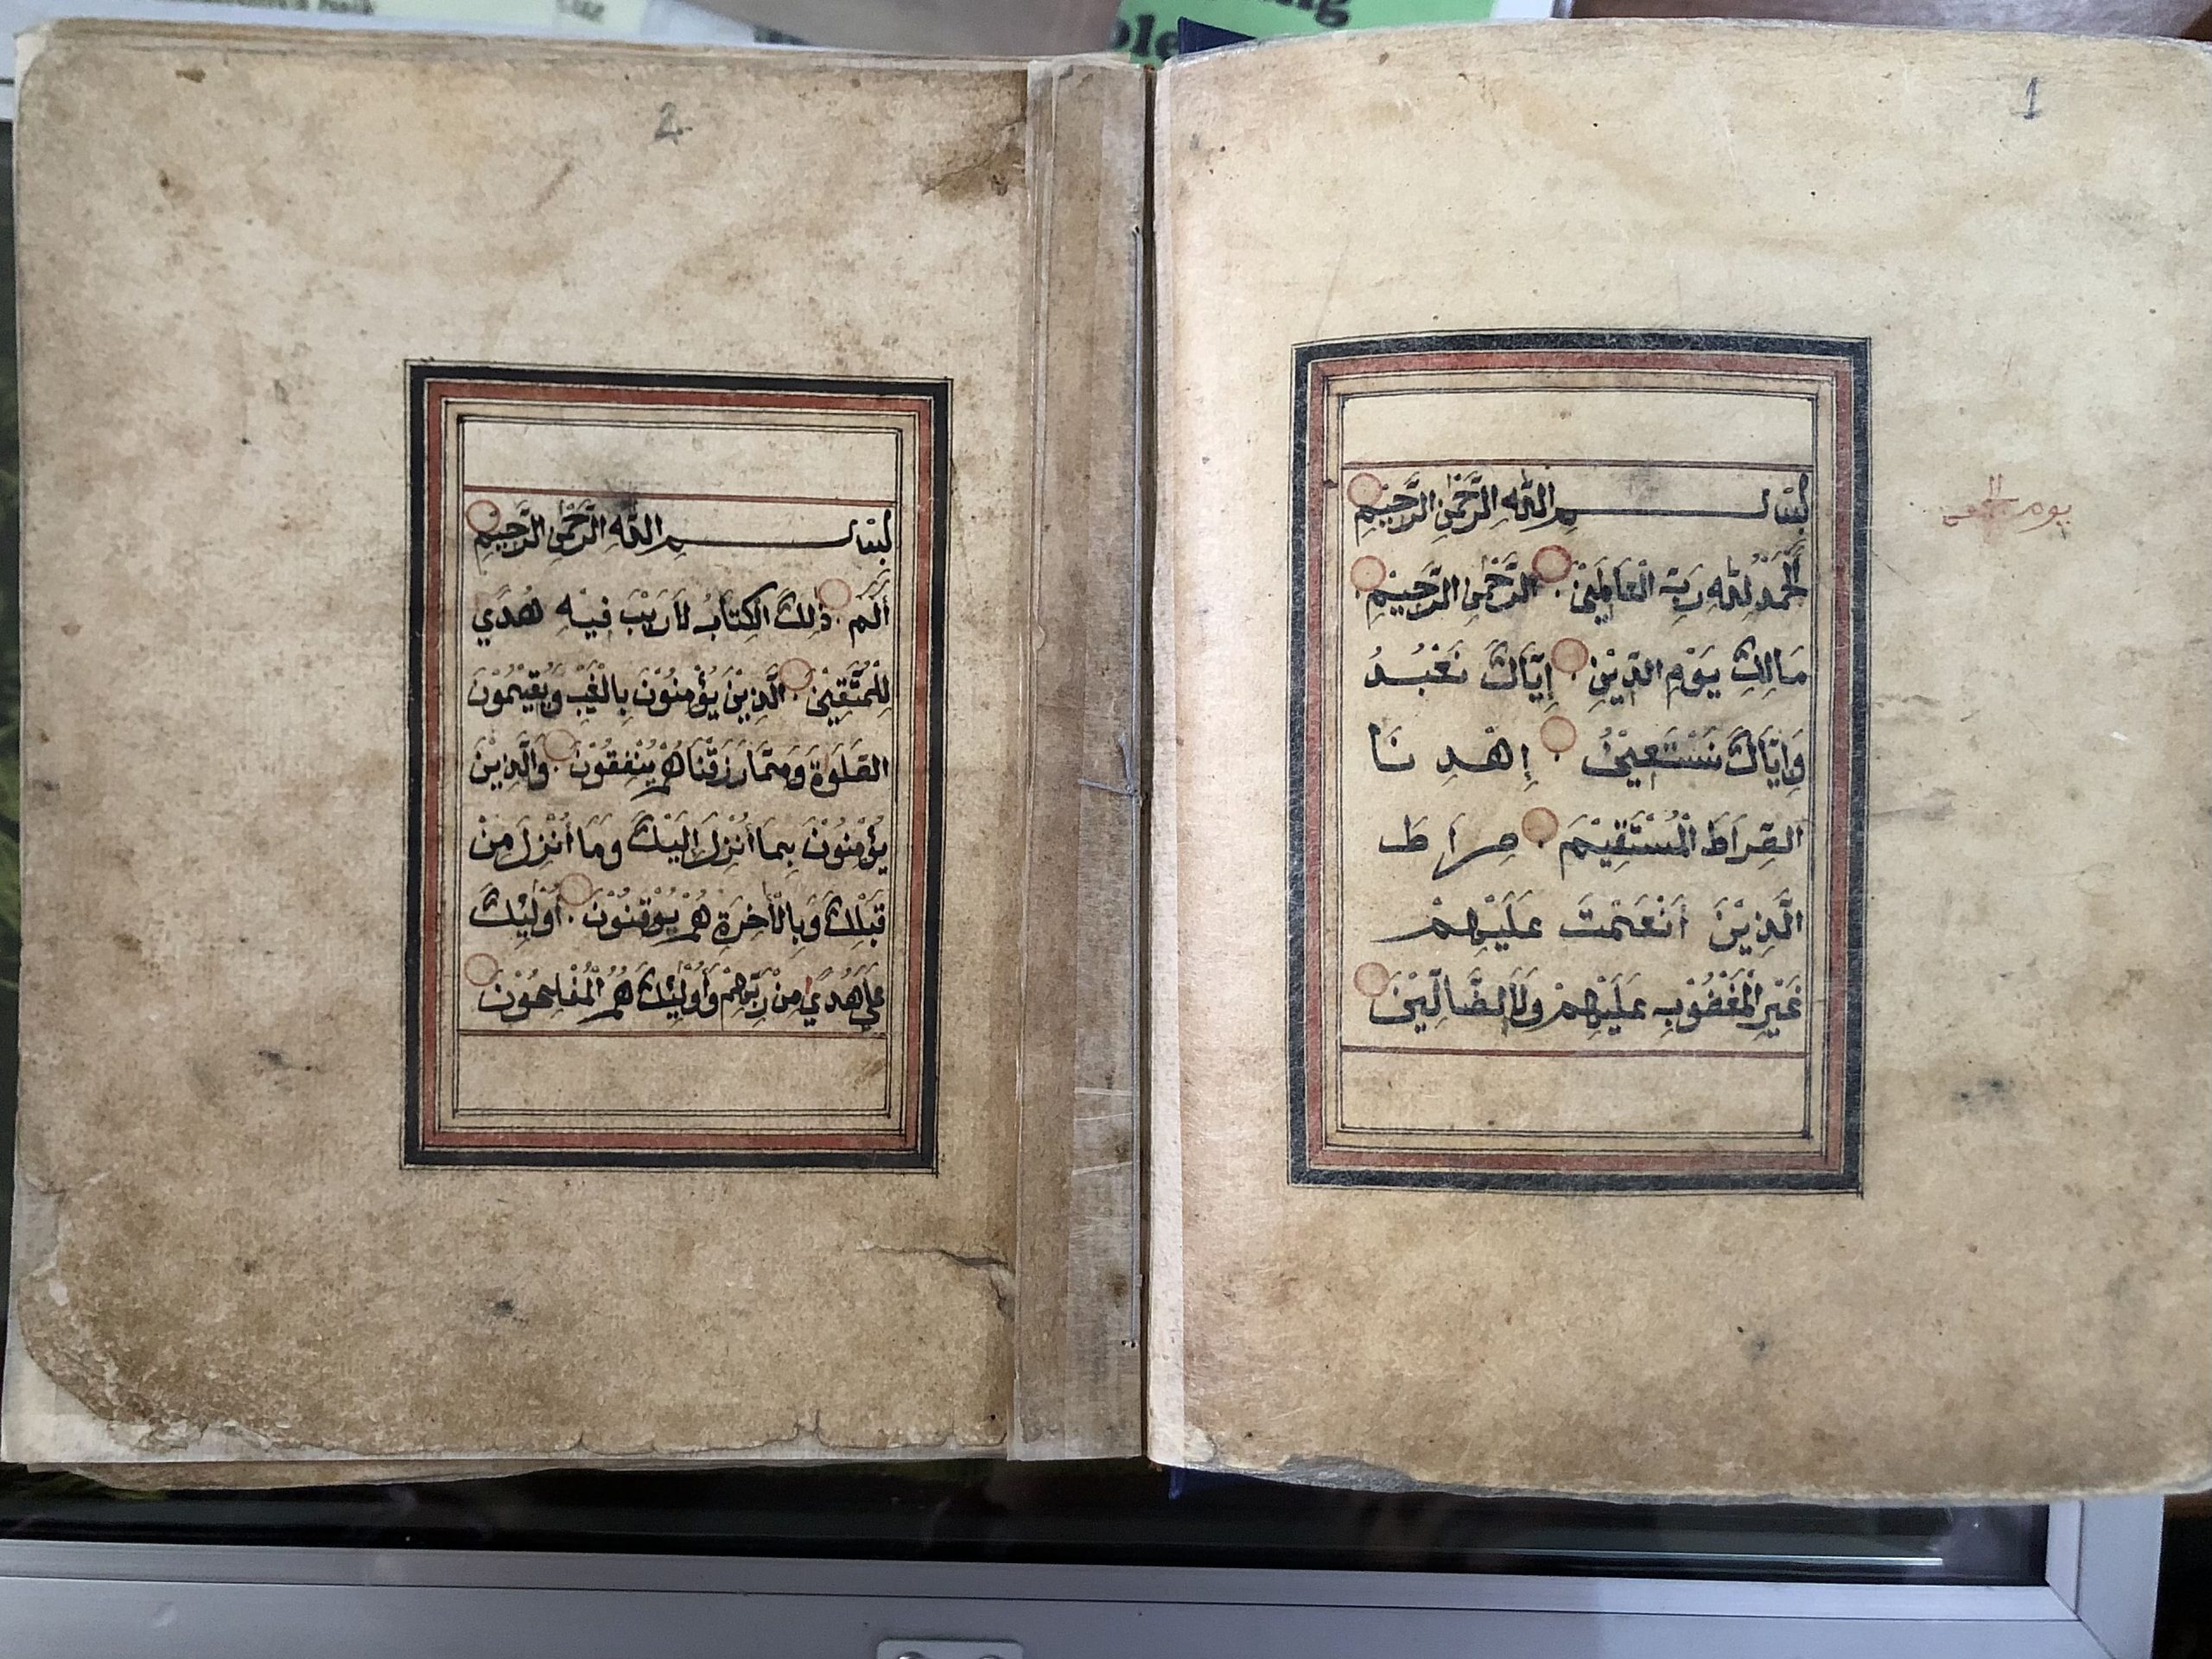 1
بِسْمِ اللّٰهِ الرَّحْمٰنِ الرَّحِيْمِ
اَلْحَمْدُ لِلّٰهِ رَبِّ الْعَالَمِيْنَ الرَّحْمٰنِ الرَّحِيْمِ
مَالِكِ يَوْمِ الدِّيْنِ إِيَّاكَ نَعْبُدُ
وَإِيَّاكَ نَسْتَعِيْنُ إِهْدِنَا
الصِّرَاطَ الْمُسْتَقِيْمَ صِرَاطَ
الَّذِيْنَ أَنْعَمْتَ عَلَيْهِمْ
غَيْرِ الْمَغْضُوْبِ عَلَيْهِمْ وَلَا الضَّالِّيْنَ
2
بِسْمِ اللّٰهِ الرَّحْمٰنِ الرَّحِيْمِ
الٓمٓ ذٰلِكَ الْكِتَابُ لَا رَيْبَ فِيْهِ هُدًي
لِلْمُتَّقِيْنَ الَّذِيْنَ يُؤْمِنُوْنَ بِالْغَيْبِ وَيُقِيْمُوْنَ
الصَّلٰوةَ وَمِمَّا رَزَقْنَاهُمْ يُنْفِقُوْنَ وَالَّذِيْنَ
يُؤْمِنُوْنَ بِمَا أُنْزِلَ إِلَيْكَ وَمَا أُنْزِلَ مِنْ
قَبْلِكَ وَبِالْأٰخِرَةِ هُمْ يُوْقِنُوْنَ أُوْلٰئِكَ
عَلَي هُدًي مِنْ رَبِّهِمْ وَأُوْلٰئِكَ هُمُ الْمُفْلِحُوْنَ